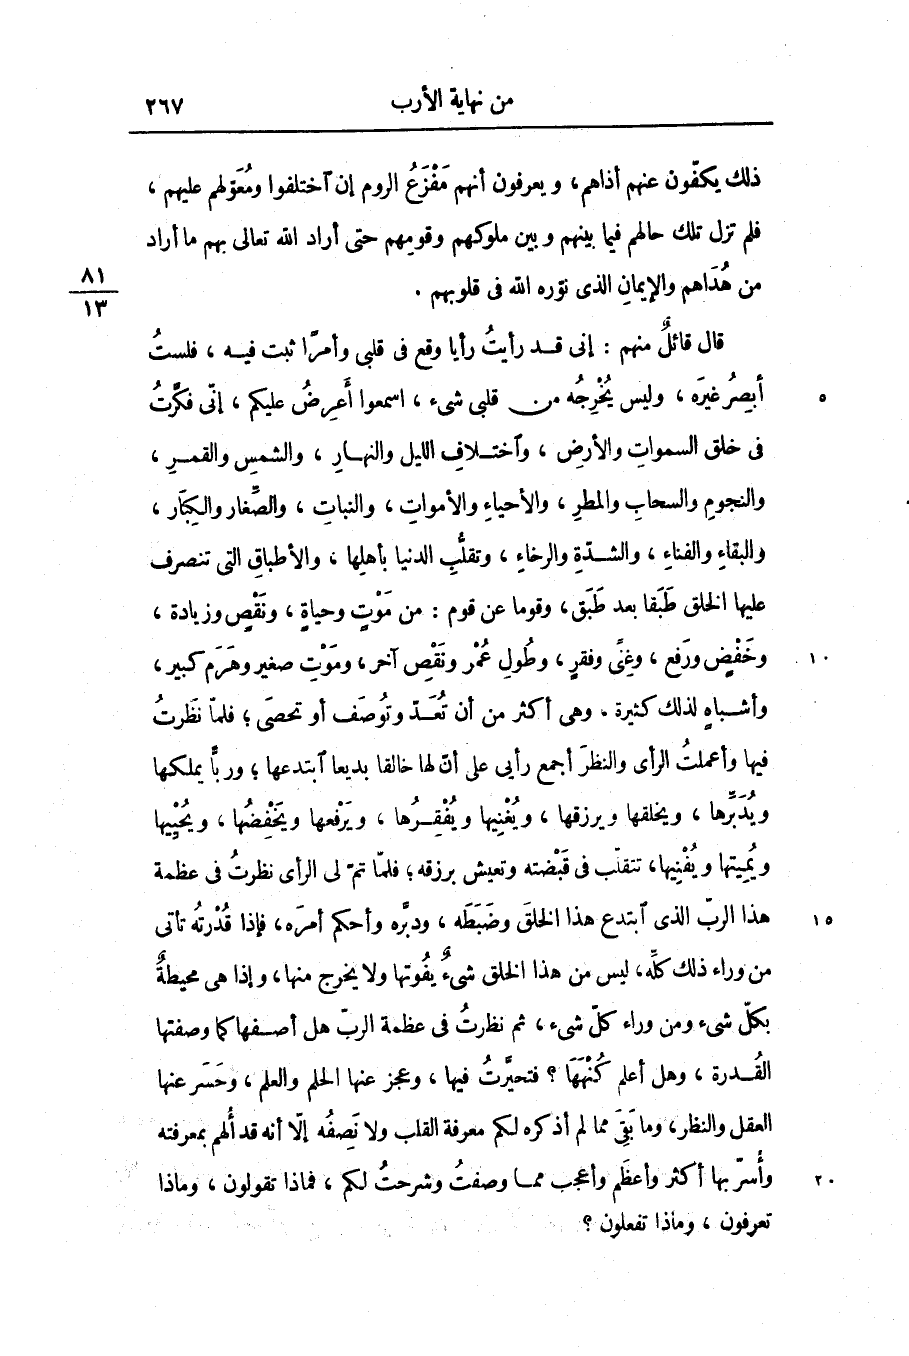 من نهاية الأرب ٢٦٧
ذلك يكفّون عنهم أذاهم، ويعرفون أنهم مَفْزَعُ الروم إن ٱختلفوا ومُعَوّلهم عليهم،
فلم تزل تلك حالهم فيما بينهم وبين ملوكهم وقومهم حتى أراد الله تعالى بهم ما أراد
من هُدَاهم والإيمانِ الذى نوّره الله فى قلوبهم.
٨١
١٣
قال قائلٌ منهم: إنى قد رأيتُ رأيا وقع فى قلبى وأمرًا ثبت فيه، فلستُ
أبصِرُ غيرَه، وليس يُخْرِجُه من قلبى شىء، اسمعوا أَعرِضُ عليكم، إنّى فكَّرتُ
٥
فى خلق السمواتِ والأرضِ، وٱختلافِ الليل والنهارِ، والشمسِ والقمرِ،
والنجومِ والسحابِ والمطرِ، والأحياءِ والأمواتِ، والنباتِ، والصِّغار والكِبَار،
والبقاءِ والفناءِ، والشدّةِ والرخاءِ، وتقلُّبِ الدنيا بأهلِها، والأطباقِ التى تنصرف
عليها الخلق طَبَقا بعد طَبَق، وقوما عن قوم: من مَوْتٍ وحياةٍ، ونَقْصٍ وزيادة،
وخَفْضٍ ورَفع، وغِنًى وفقرٍ، وطُولِ عُمْر ونَقْصِ آخر، ومَوْتِ صغير وهَرَم كبير،
١٠
وأشباهٍ لذلك كثيرة. وهى أكثر من أن تُعَدّ وتُوصَف أو تحصَى؛ فلمّا نظَرتُ
فيها وأعملتُ الرأى والنظرَ أجمع رأيى على أنّ لها خالقا بديعا ٱبتدعها؛ وربًّا يملكها
ويُدَبِّرها، ويخلقها ويرزقها، ويُغْنِيها ويُفْقِرُها، ويَرْفعها ويَخْفِضُها، ويُحْيِيها
ويُمِيتها ويُفْنِيها، تتقلّب فى قَبْضته وتعيش برزقه؛ فلمّا تمّ لى الرأى نظرتُ فى عظمة
هذا الربّ الذى ٱبتدع هذا الخلقَ وضَبَطَه، ودبَّره وأحكم أمرَه، فإذا قُدْرتهُ تأتى
١٥
من وراء ذلك كلِّه، ليس من هذا الخلق شىءٌ يفُوتها ولا يخرج منها، وإذا هى محيطةٌ
بكلّ شىء ومن وراء كلّ شىء، ثم نظرتُ فى عظمة الربّ هل أصفها كما وصفتها
القُدرة، وهل أعلم كُنْهَهَا؟ فتحيَّرتُ فيها، وعجز عنها الحلم والعلم، وحَسَر عنها
العقل والنظر، وما بَقِىَ مما لم أذكره لكم معرفة القلب ولا نَصِفُه إلّا أنه قد أُلهم بمعرفته
وأُسرّ بها أكثر وأعظَم وأعجب مما وصفتُ وشرحتُ لكم، فماذا تقولون، وماذا
٢٠
تعرفون، وماذا تفعلون؟